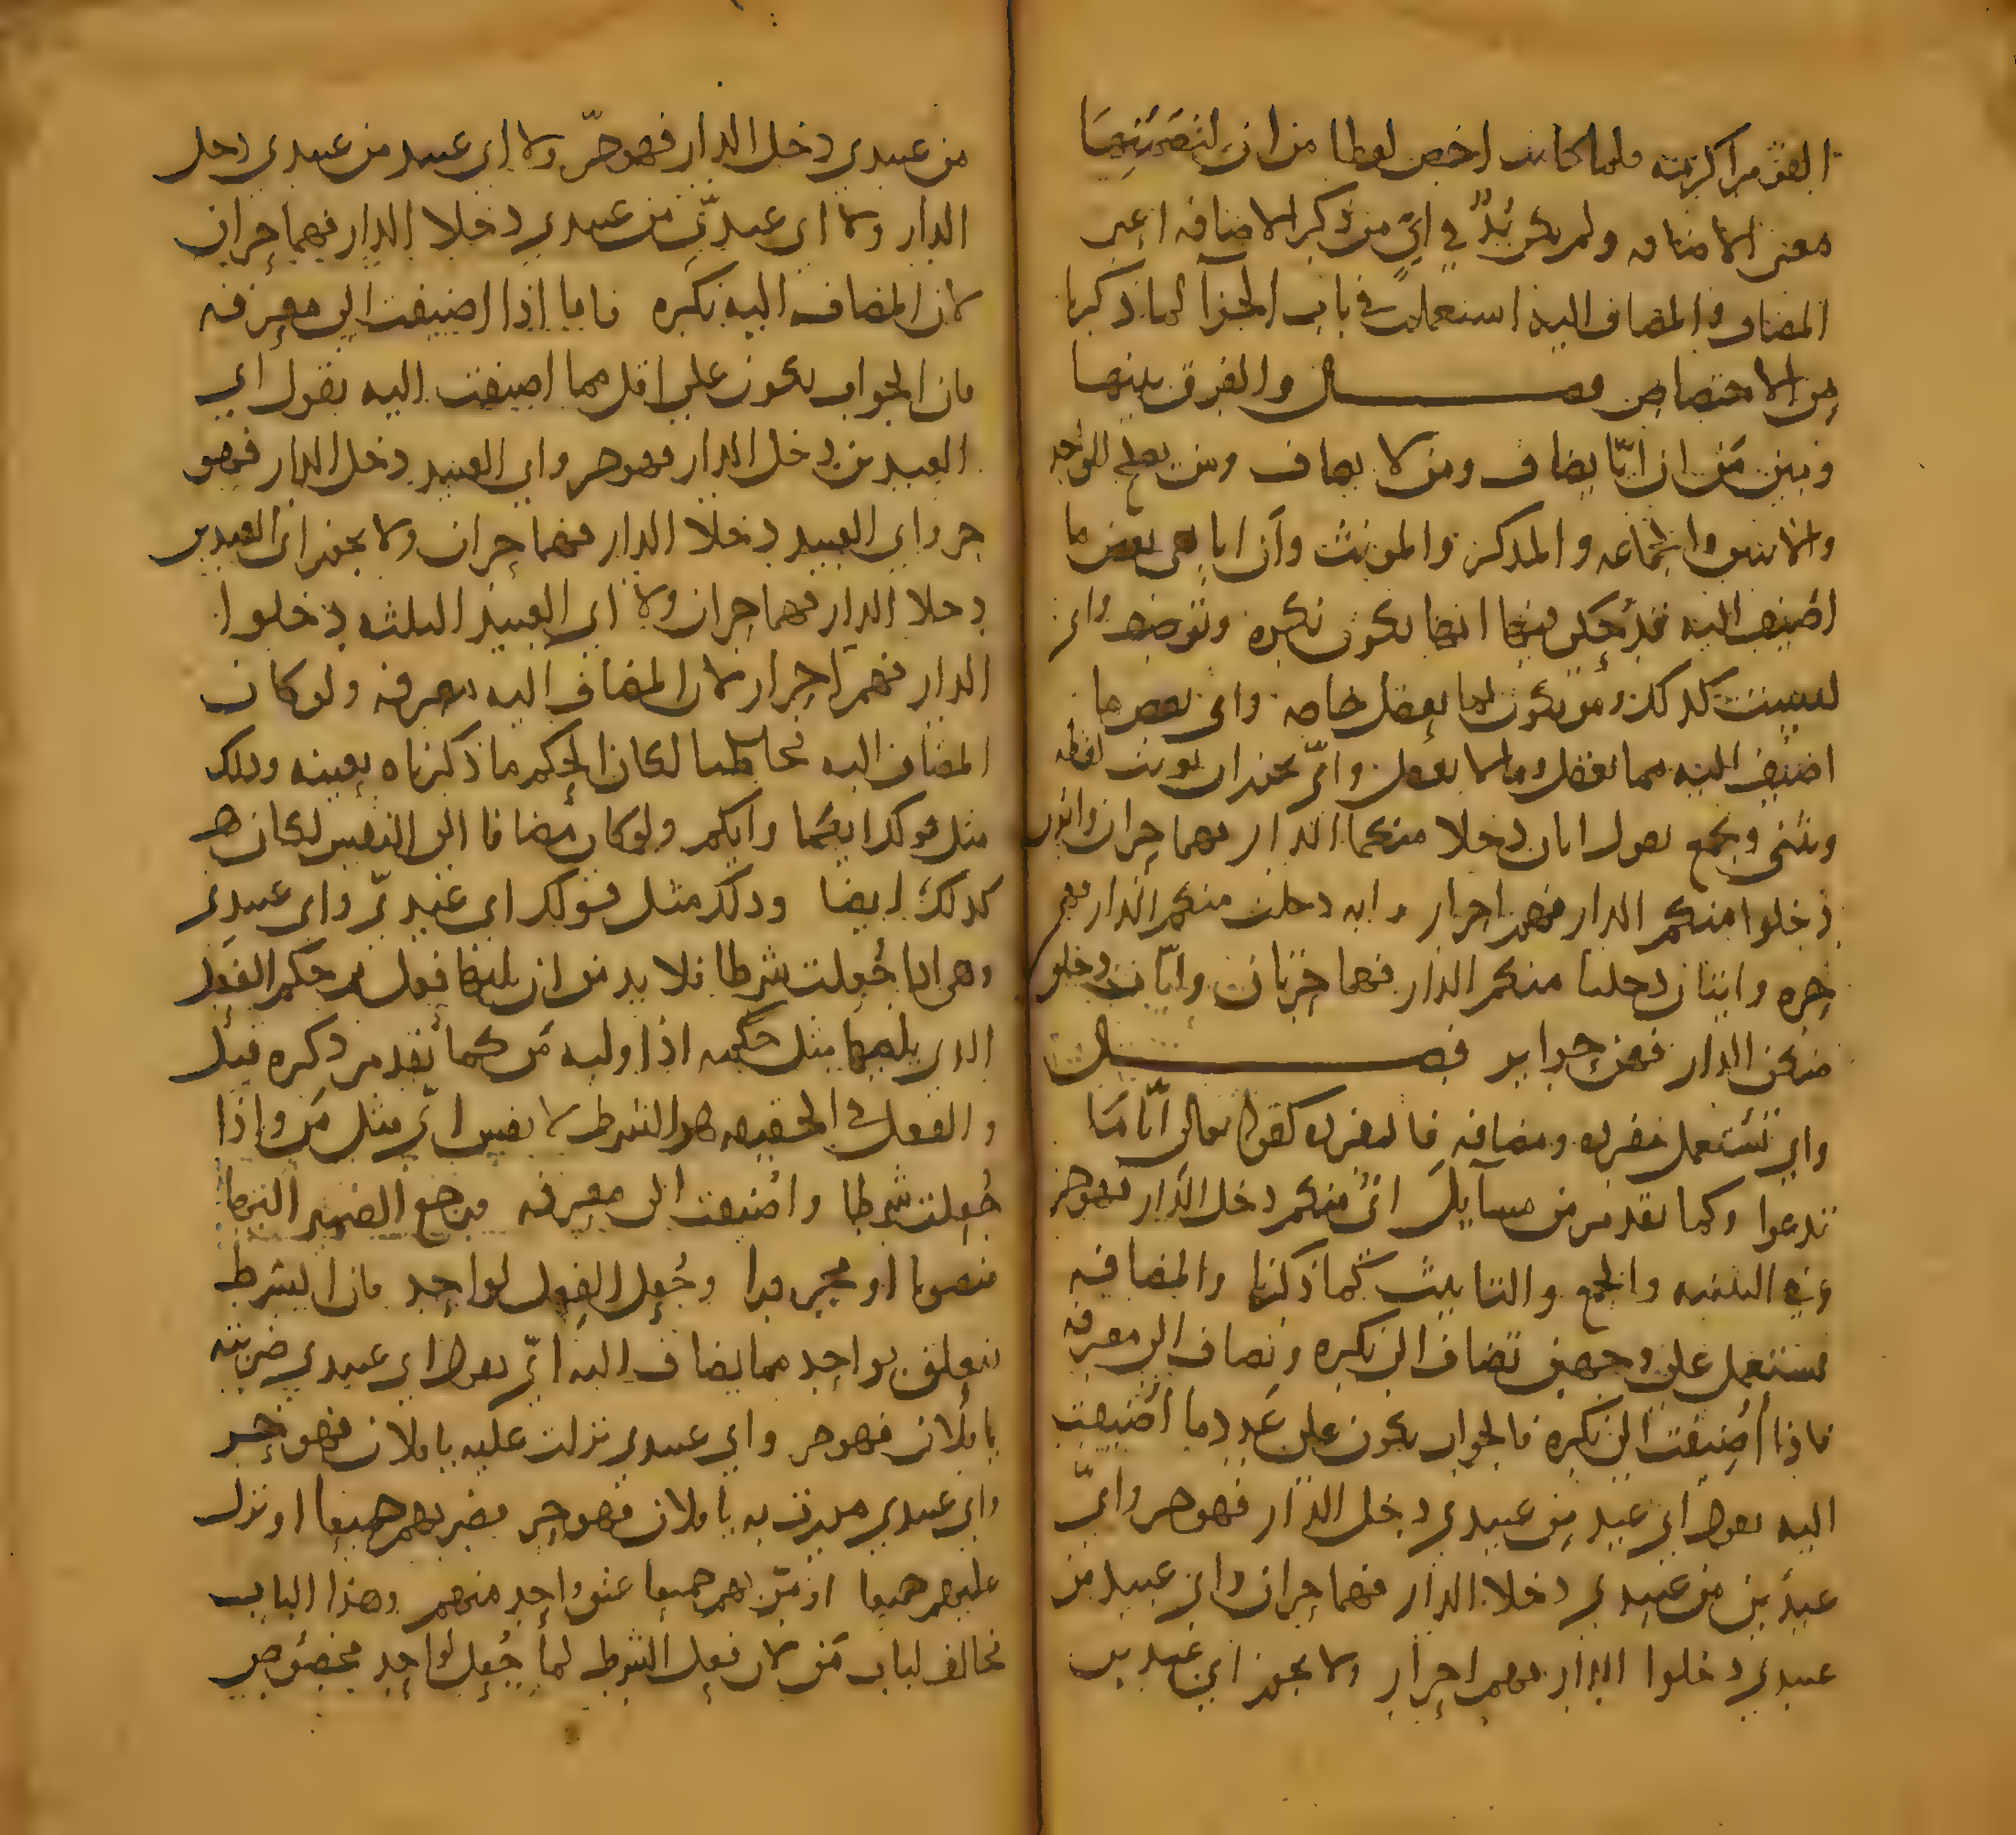 القوم اكرمته فلما كانت اخص لفظا من ان لتضمنها
معنى الاضافه ولم يكن بُدٌّ في ايٍّ من ذكر الاضافه اعني
المضاف والمضاف اليه استعملت في باب الجزآ لما ذكرنا
من الاختصاص فصل والفرق بينها
وبين مَن ان ايّا يضاف ومن لا يضاف ومن يصلح للواحد
والاثنين والجماعه والمذكر والمونث وأن ايا هي بعض ما
اضيف اليه فحكمها انها تكون نكره ومعرفه واي
ليست كذلك ومن تكون لما يعقل خاصه واي بعض ما
اضيف اليه مما يعقل وما لا يعقل وايّ يجوز ان يونث لفظه
ويثنى ويجمع تقول ايان دخلا منكما الدار فهما حران وايون
دخلوا منكم الدار فهم احرار وايه دخلت منكم الدار فهي
حره وايتان دخلتا منكم الدار فهما حرتان وايّات دخلن
منكن الدار فهن حراير فصل
واي تستعمل مفرده ومضافه فالمفرده كقوله تعالى أيّا مّا
تدعوا وكما تقدم من مسآيل ايٌّ منكم دخل الدّار فهو حر
وفي التثنيه والجمع والتانيث كما ذكرنا والمضافه
تستعمل على وجهين تضاف الى نكره وتضاف الى معرفه
فاذا أُضيفت الى نكره فالجواب يكون على عَدد ما أُضيفت
اليه تقول اي عبد من عبيدي دخل الدار فهو حر وايّ
عبدَين من عبيدي دخلا الدار فهما حران واي عبيد من
عبيدي دخلوا الدار فهم احرار ولا يجوز اي عبدين
من عبيدي دخل الدار فهو حرّ ولا اي عبيد من عبيدي دخل
الدار ولا اي عبدَين من عبيدي دخلا الدار فهما حران
لان المضاف اليه نكره فاما اذا اضيفت الى معرفه
فان الجواب يكون على اقل مما اضيفت اليه تقول اي
العبيد من دخل الدار فهو حر واي العبيد دخل الدار فهو
حر واي العبيد دخلا الدار فهما حران ولا يجوز اي العبدين
دخلا الدار فهما حران ولا اي العبيد الثلثه دخلوا
الدار فهم احرار لان المضاف اليه معرفه ولو كان
المضاف اليه مخاطبا لكان الحكم ما ذكرناه بعينه وذلك
مثل قولك ايكما وايكم ولو كان مضافا الى النفس لكان
كذلك ايضا وذلك مثل قولك اي عبديّ واي عبيدي
وهي اذا جُعلت شرطا فلا بد من ان يليها فعل حكم الفعل
الذي يليها مثل حكمه اذا وليه مَن كما تقدم ذكره قبل
والفعل في الحقيقه هو الشرط لا نفس ايّ مثل مَن واذا
جُعلت شرطا واُضيفت الى معرفه فرجع الضمير اليها
منصوبا او مجرورا وجُعل الفعل لواحد فان الشرط
يتعلق بواحد مما يضاف اليه ايّ تقول اي عبيدي ضربته
يا فلان فهو حر واي عبيدي نزلت عليه يا فلان فهو حر
واي عبيدي مررت به يا فلان فهو حر فضربهم جميعا او نزل
عليهم جميعا او مرّ بهم جميعا عتق واحد منهم وهذا الباب
مخالف لباب مَن لان فعل الشرط لما جُعل لواحد مخصُوص